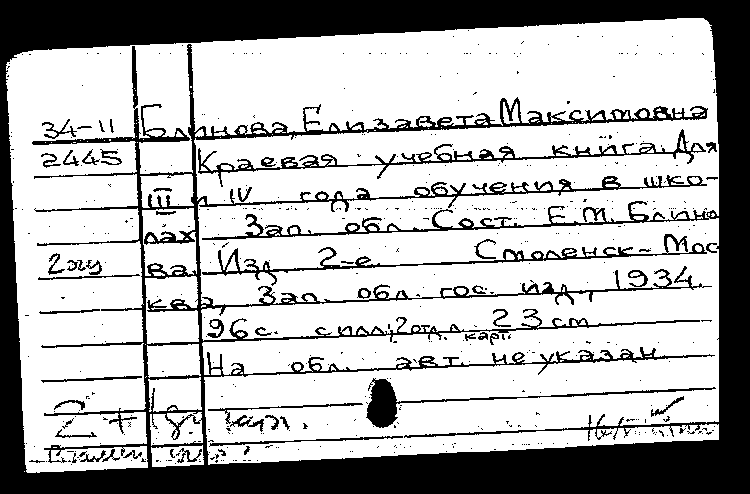 34-11 Блинова, Елизавета Максимовна
2445 Краевая учебная книга. Для
III и IV года обучения в шко-
лах Зап. обл. Сост. Е.М. Блино
2 эку ва. Изд. 2-е. Смоленск-Мос
ква, Зап. обл. гос. изд., 1934.
96 с. с илл; 2 отд. л. карт. 23 см
На обл. авт. не указан.
2 +